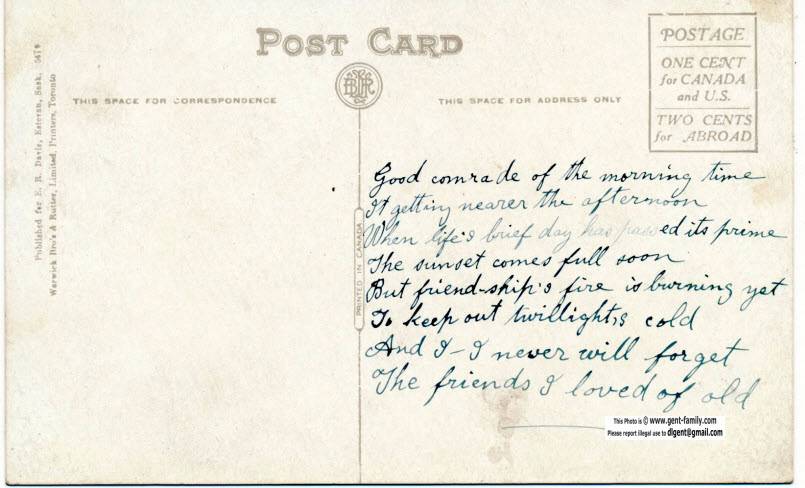 POST CARD
THIS SPACE FOR CORRESPONDENCE
THIS SPACE FOR ADDRESS ONLY
POSTAGE
ONE CENT
for CANADA
and U.S.
TWO CENTS
for ABROAD
Published for E. R. Davis, Estevan, Sask. 5479
Warwick Bro's & Rutter, Limited, Printers, Toronto
PRINTED IN CANADA
Good comrade of the morning time
It getting nearer the afternoon
When life's brief day has passed its prime
The sunset comes full soon
But friend-ship's fire is burning yet
To keep out twillights cold
And I-I never will forget
The friends I loved of old
This Photo is © www.gent-family.com
Please report illegal use to dlgent@gmail.com